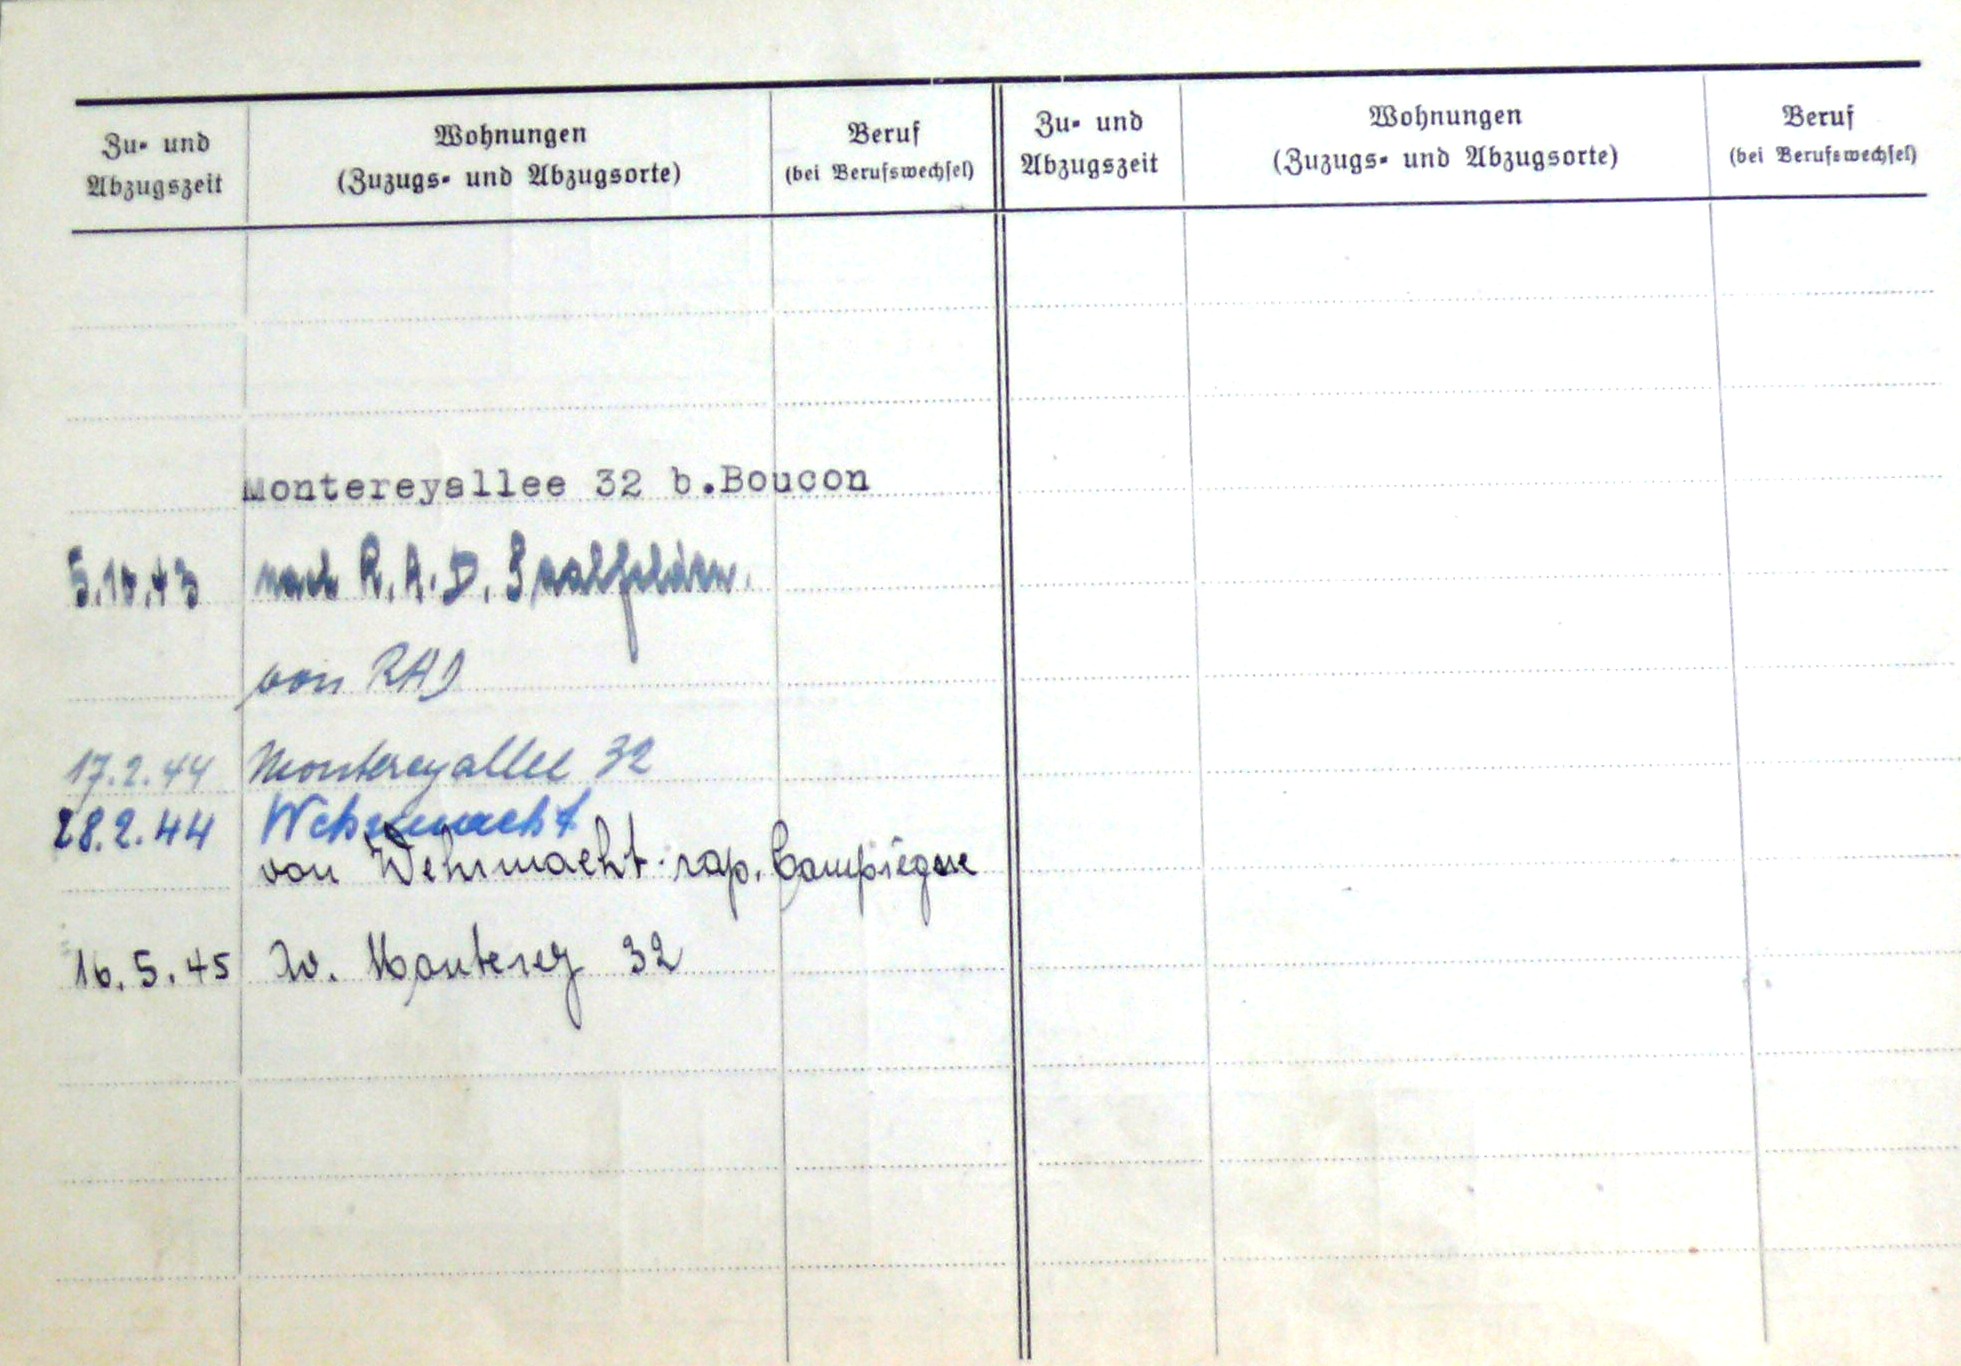 Zu- und Abzugszeit
Wohnungen
(Zuzugs- und Abzugsorte)
Beruf
(bei Berufswechsel)
Zu- und Abzugszeit
Wohnungen
(Zuzugs- und Abzugsorte)
Beruf
(bei Berufswechsel)
Montereyallee 32 b.Boucon
5.10.43 nach R.A.D. Saalfelden.
von RAD
17.2.44 Montereyallee 32
28.2.44 Wehrmacht
von Wehrmacht rap. Compiegne
16.5.45 Av. Monterey 32